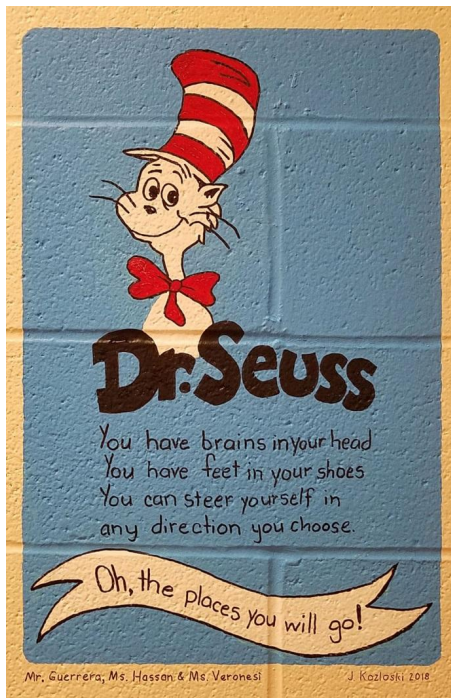 Dr. Seuss
You have brains in your head
You have feet in your shoes
You can steer yourself in
any direction you choose.
Oh, the places you will go!
Mr. Guerrera, Ms. Hassan & Ms. Veronesi
J Kozloski 2018